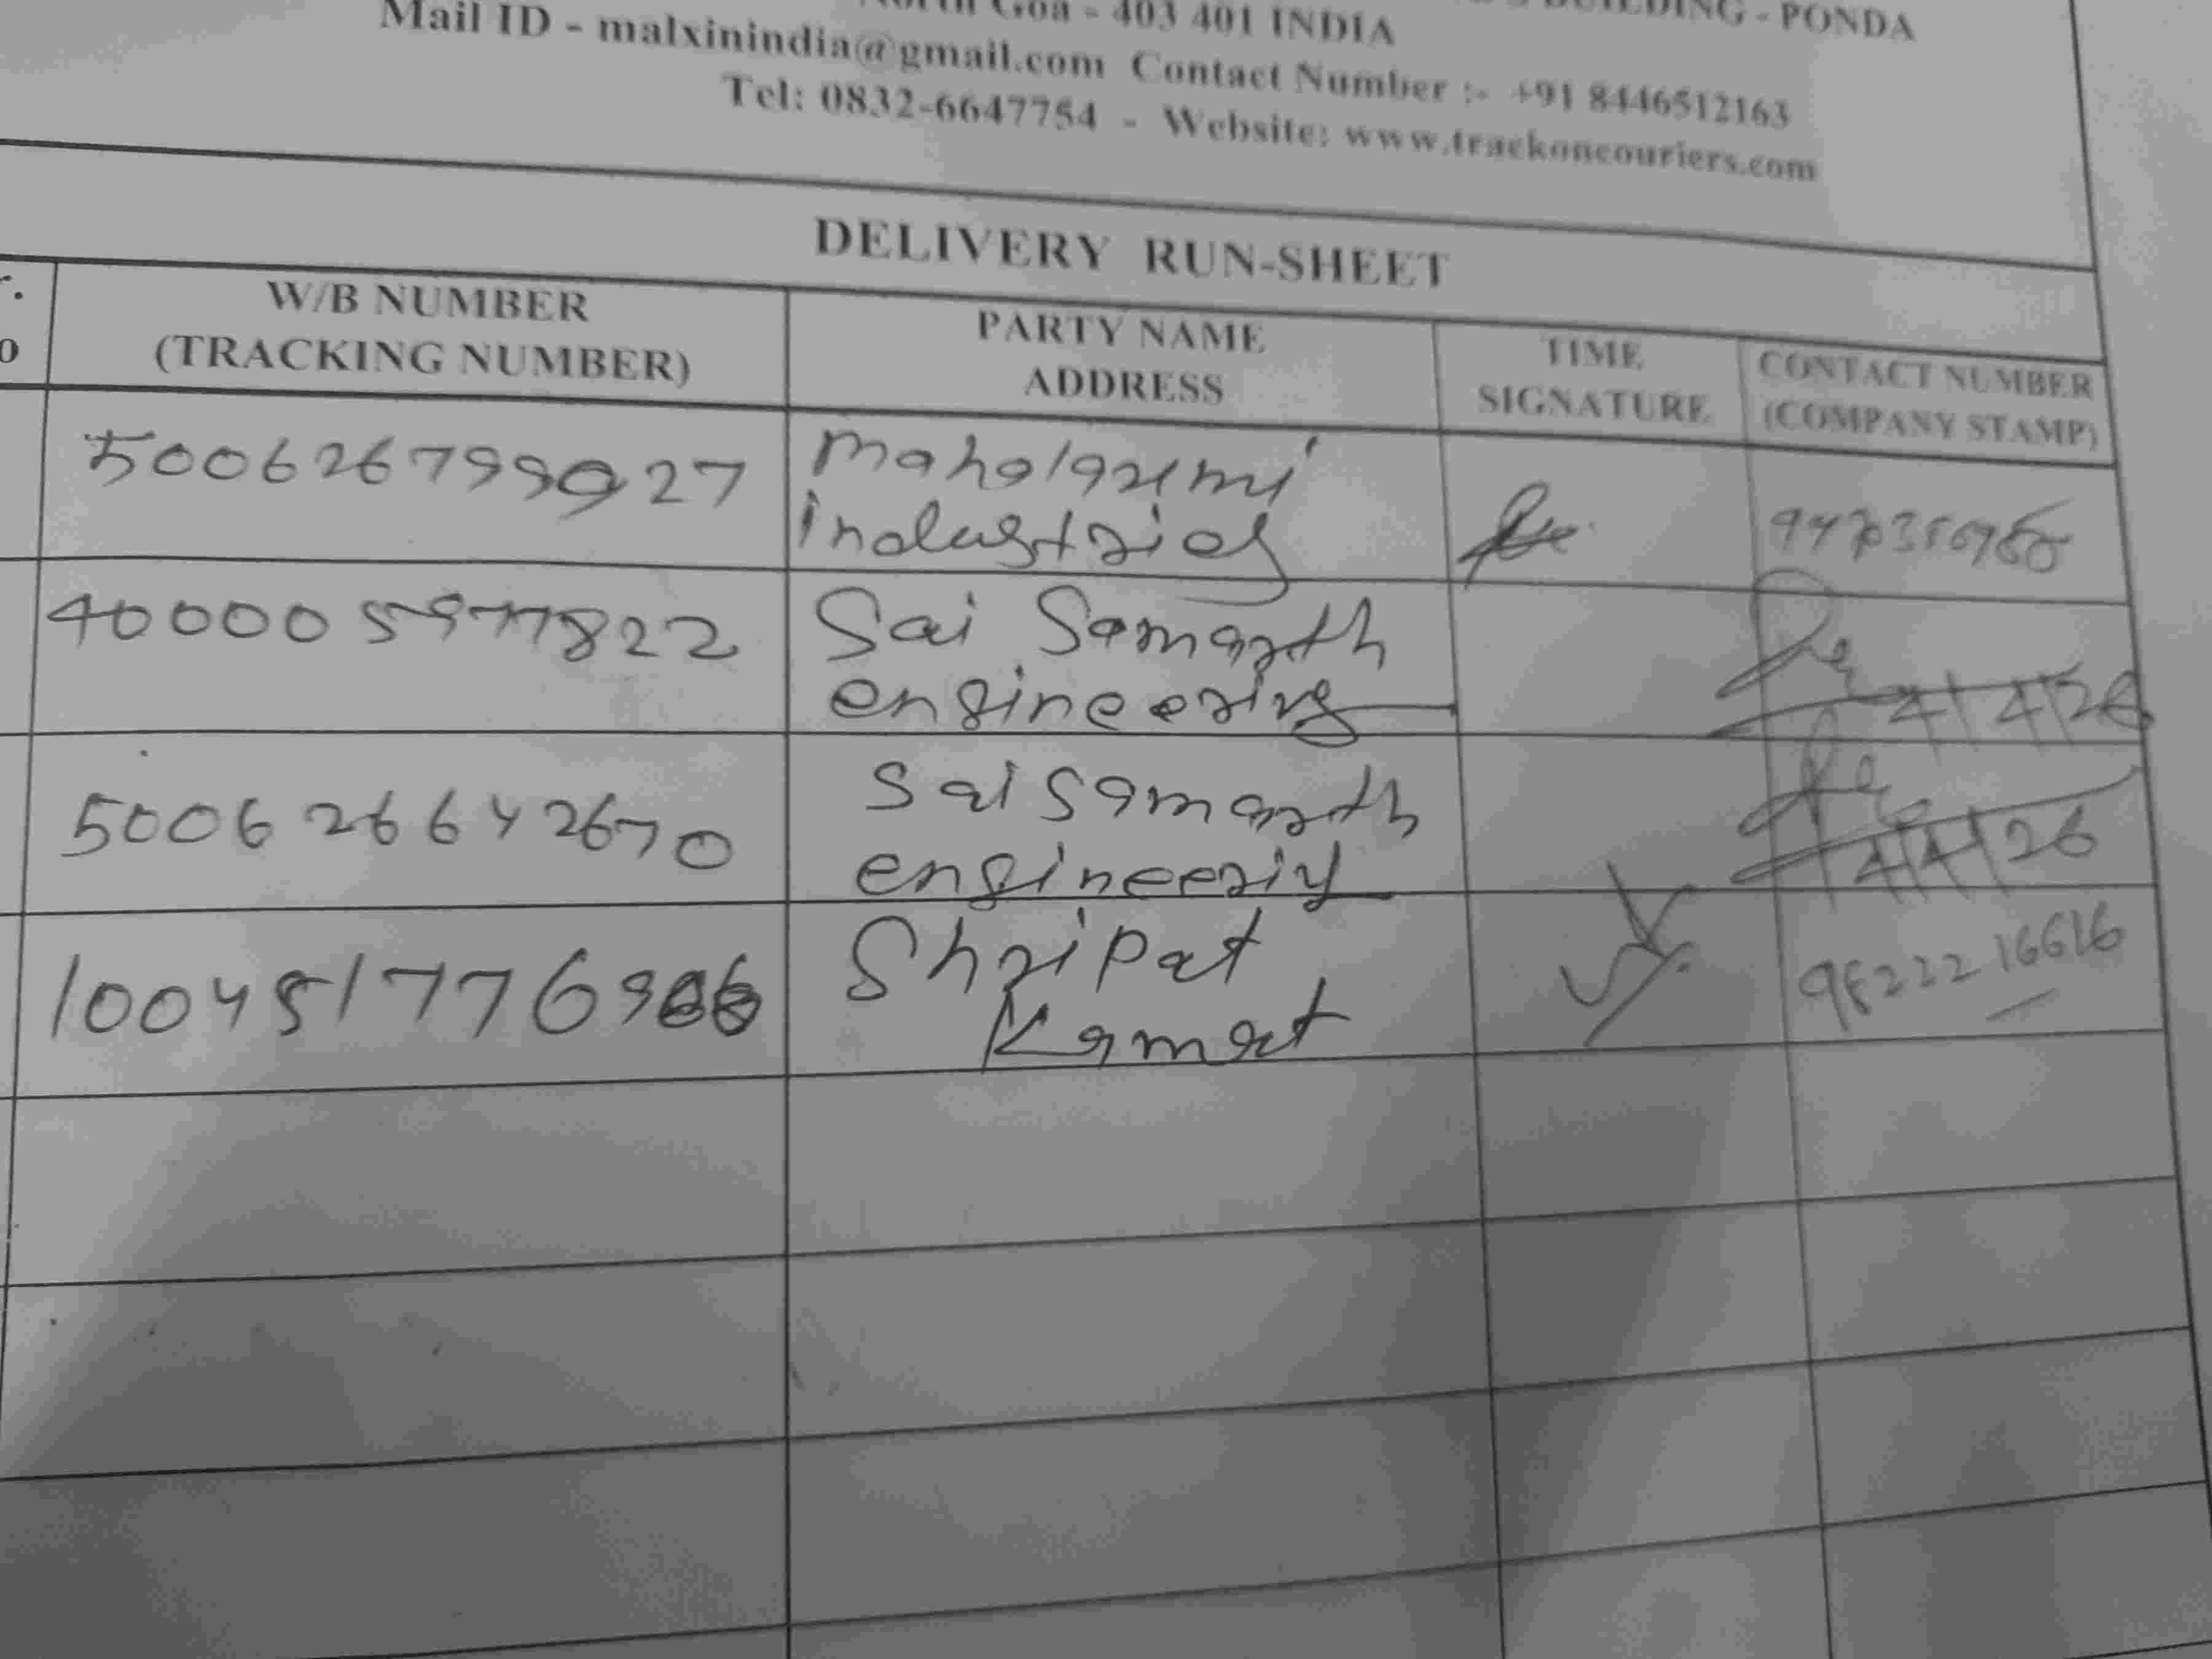 North Goa - 403 401 INDIA
BUILDING - PONDA
Mail ID - malxinindia@gmail.com Contact Number :- +91 8446512163
Tel: 0832-6647754 - Website: www.trackoncouriers.com
DELIVERY RUN-SHEET
W/B NUMBER
(TRACKING NUMBER)
PARTY NAME
ADDRESS
TIME
SIGNATURE
CONTACT NUMBER
(COMPANY STAMP)
500626799927
mahalaxmi
industries
400005977822
Sai Samarth
engineering
4/4/26
500626642670
Sai Samarth
engineering
4/4/26
Shripat
Kamat
9822216616